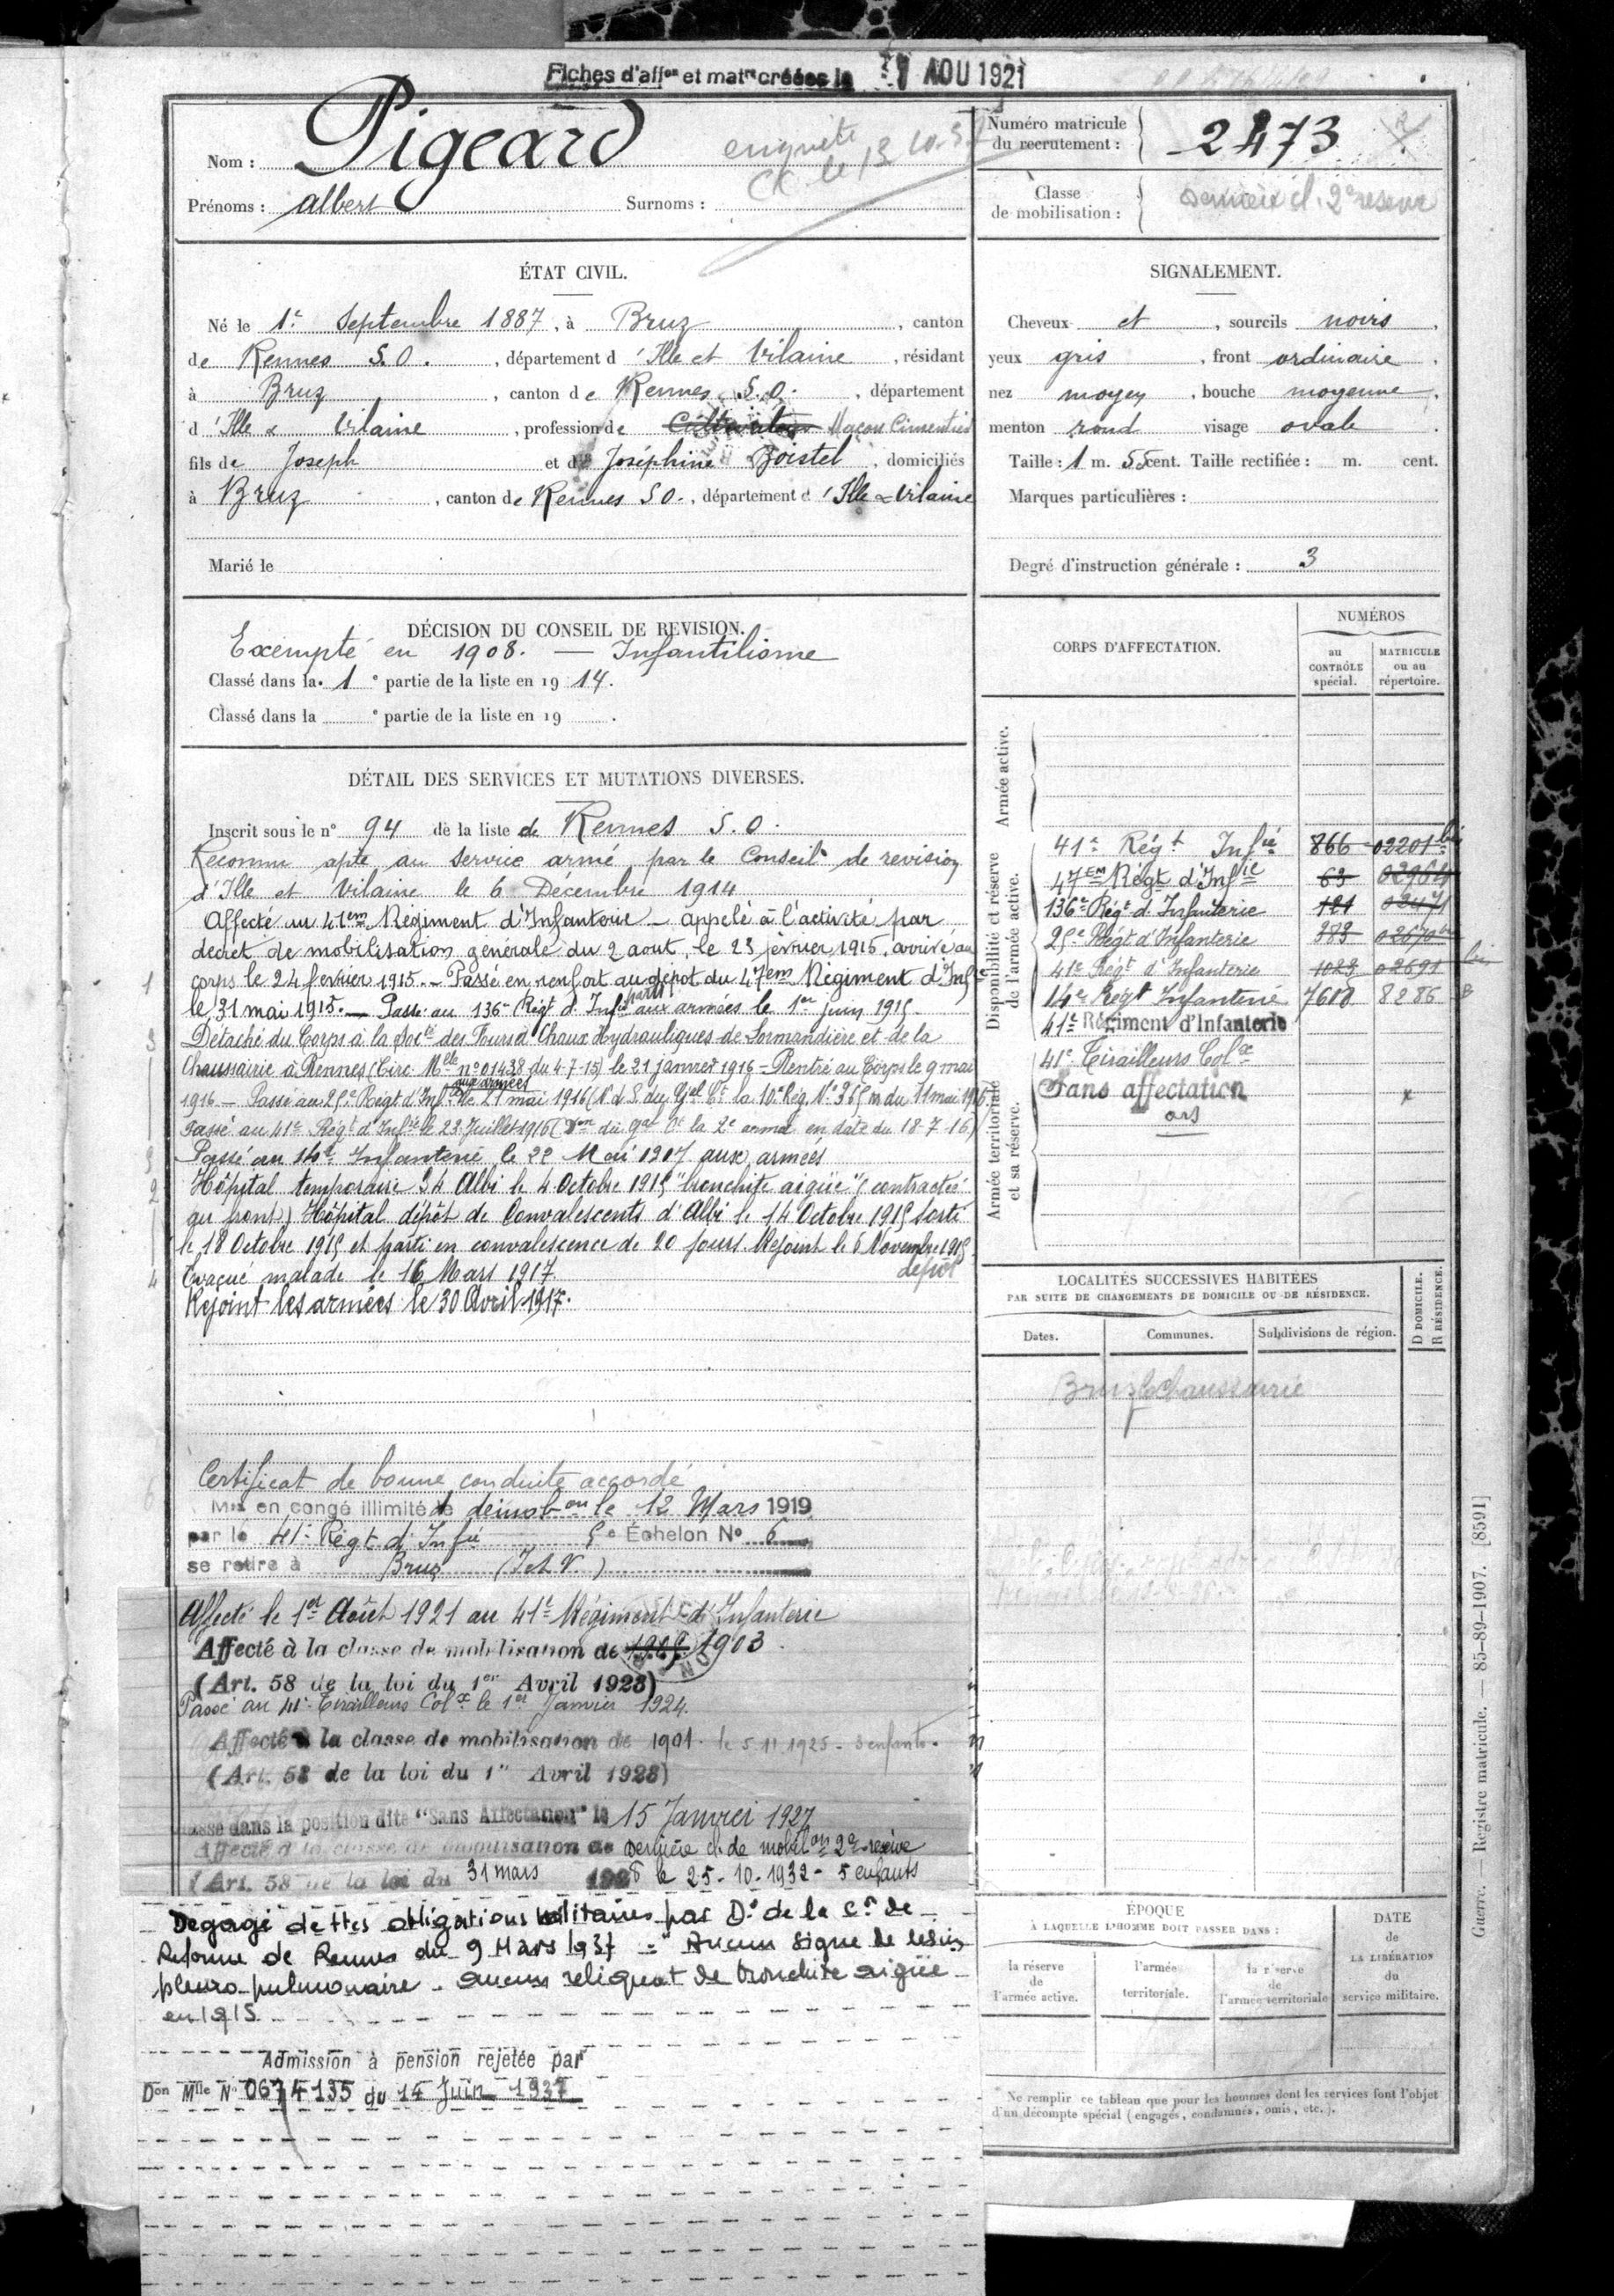 Fiches d'affon et matrcréées le 1 AOU 1921
Nom : Pigeard
enquête
CC le 13.10.5
Prénoms : albert Surnoms :
Numéro matricule
du recrutement : 2473
Classe
de mobilisation : dernière cl. 2e reserve
ÉTAT CIVIL.
Né le 1er Septembre 1887, à Bruz, canton
de Rennes S.O., département d'Ille et Vilaine, résidant
à Bruz, canton de Rennes S.O., département
d'Ille & Vilaine, profession de Cultivateur Maçon Cimentier
fils de Joseph et de Joséphine Boistel, domiciliés
à Bruz, canton de Rennes SO., département d'Ille & Vilaine
Marié le
SIGNALEMENT.
Cheveux et, sourcils noirs,
yeux gris, front ordinaire,
nez moyen, bouche moyenne,
menton rond visage ovale.
Taille : 1 m. 55 cent. Taille rectifiée : m. cent.
Marques particulières :
Degré d'instruction générale : 3
DÉCISION DU CONSEIL DE REVISION.
Exempté en 1908. — Infantilisme
Classé dans la 1e partie de la liste en 1914.
Classé dans la e partie de la liste en 19 .
DÉTAIL DES SERVICES ET MUTATIONS DIVERSES.
Inscrit sous le n° 94 de la liste de Rennes S.O.
Reconnu apte au service armé par le Conseil de revision
d'Ille et Vilaine le 6 Décembre 1914
Affecté au 41em Régiment d'Infanterie – appelé à l'activité par
decret de mobilisation générale du 2 aout, le 23 février 1915, arrivé au
corps le 24 fevrier 1915. – Passé en renfort au depot du 47em Régiment d'Infie
le 31 mai 1915. — Passé au 136e Régt d'Infie parti aux armées le 1er juin 1915.
Détaché du Corps à la Socté des Fours à Chaux Hydrauliques de Lormandière et de la
Chaussairie à Rennes (Circ. Mlle n° 01438 du 4-7-15) le 21 janvier 1916 – Rentré au Corps le 9 mai
1916 – Passé au 25e Régt d'Infie aux armées le 21 mai 1916 (N d S du Gal Ct la 10e Rég. N° 365 m du 11 mai 1916)
Passé au 41e Régt d'Infie le 22 Juillet 1916 (Don du gal Ct la 2e armée en date du 18-7-16)
Passé au 14e Infanterie le 22 Mai 1917 aux armées
Hôpital temporaire 34 Albi le 4 Octobre 1915 "bronchite aigüe" (contractée
au front) Hôpital dépôt de Convalescents d'Albi le 14 Octobre 1915 Sorti
le 18 Octobre 1915 et parti en convalescence de 20 jours. Rejoint le 6 Novembre 1915
dépôt
Evacué malade le 16 Mars 1917.
Rejoint les armées le 30 Avril 1917.
Certificat de bonne conduite accordé
Mis en congé illimité de démobon le 12 Mars 1919
par le 41e Régt d'Infie 5e Échelon No 6
se retire à Bruz (I et V.)
Affecté le 1er Août 1921 au 41e Régiment d'Infanterie
Affecté à la classe de mobilisation de 1905 1903.
(Art. 58 de la loi du 1er Avril 1923)
Passé au 41e Tirailleurs Colx le 1er Janvier 1924.
Affecté à la classe de mobilisation de 1901. le 5.11.1925 - 3 enfants.
(Art. 58 de la loi du 1er Avril 1923)
Classé dans la position dite "Sans Affectation" le 15 Janvier 1927
Affecté à la classe de mobilisation de dernière cl. de mobilon 2e reserve
(Art. 58 de la loi du 31 mars 1928 le 25-10-1932 - 5 enfants
Degagé de ttes obligations militaires par Don de la Con de
Reforme de Rennes du 9 Mars 1937 = "Aucun signe de lesion
pleuro-pulmonaire - aucun reliquat de bronchite aigüe
en 1915
Admission à pension rejetée par
Don Mlle No 0674135 du 14 Juin 1937
CORPS D'AFFECTATION.
NUMÉROS
au
CONTRÔLE
spécial.
MATRICULE
ou au
répertoire.
Armée active.
Disponibilité et réserve
de l'armée active.
41e Régt Infie 866 02201 bis
47EM Régt d'Infie 63 02964
136e Régt d'Infanterie 121 02471
25e Régt d'Infanterie 383 02670
41e Régt d'Infanterie 1023 02691 bis
14e Régt Infanterie 7618 8286
41e Régiment d'Infanterie
41e Tirailleurs Colx
Armée territoriale
et sa réserve.
Sans affectation
ors
LOCALITÉS SUCCESSIVES HABITÉES
PAR SUITE DE CHANGEMENTS DE DOMICILE OU DE RÉSIDENCE.
Dates.
Communes.
Subdivisions de région.
D DOMICILE.
R RÉSIDENCE.
Bruz la Chaussairie
ÉPOQUE
À LAQUELLE L'HOMME DOIT PASSER DANS :
la réserve
de
l'armée active.
l'armée
territoriale.
la réserve
de
l'armée territoriale
DATE
de
LA LIBÉRATION
du
service militaire.
Ne remplir ce tableau que pour les hommes dont les services font l'objet
d'un décompte spécial (engagés, condamnés, omis, etc.).
Guerre. — Registre matricule. — 85-89-1907. [8591]